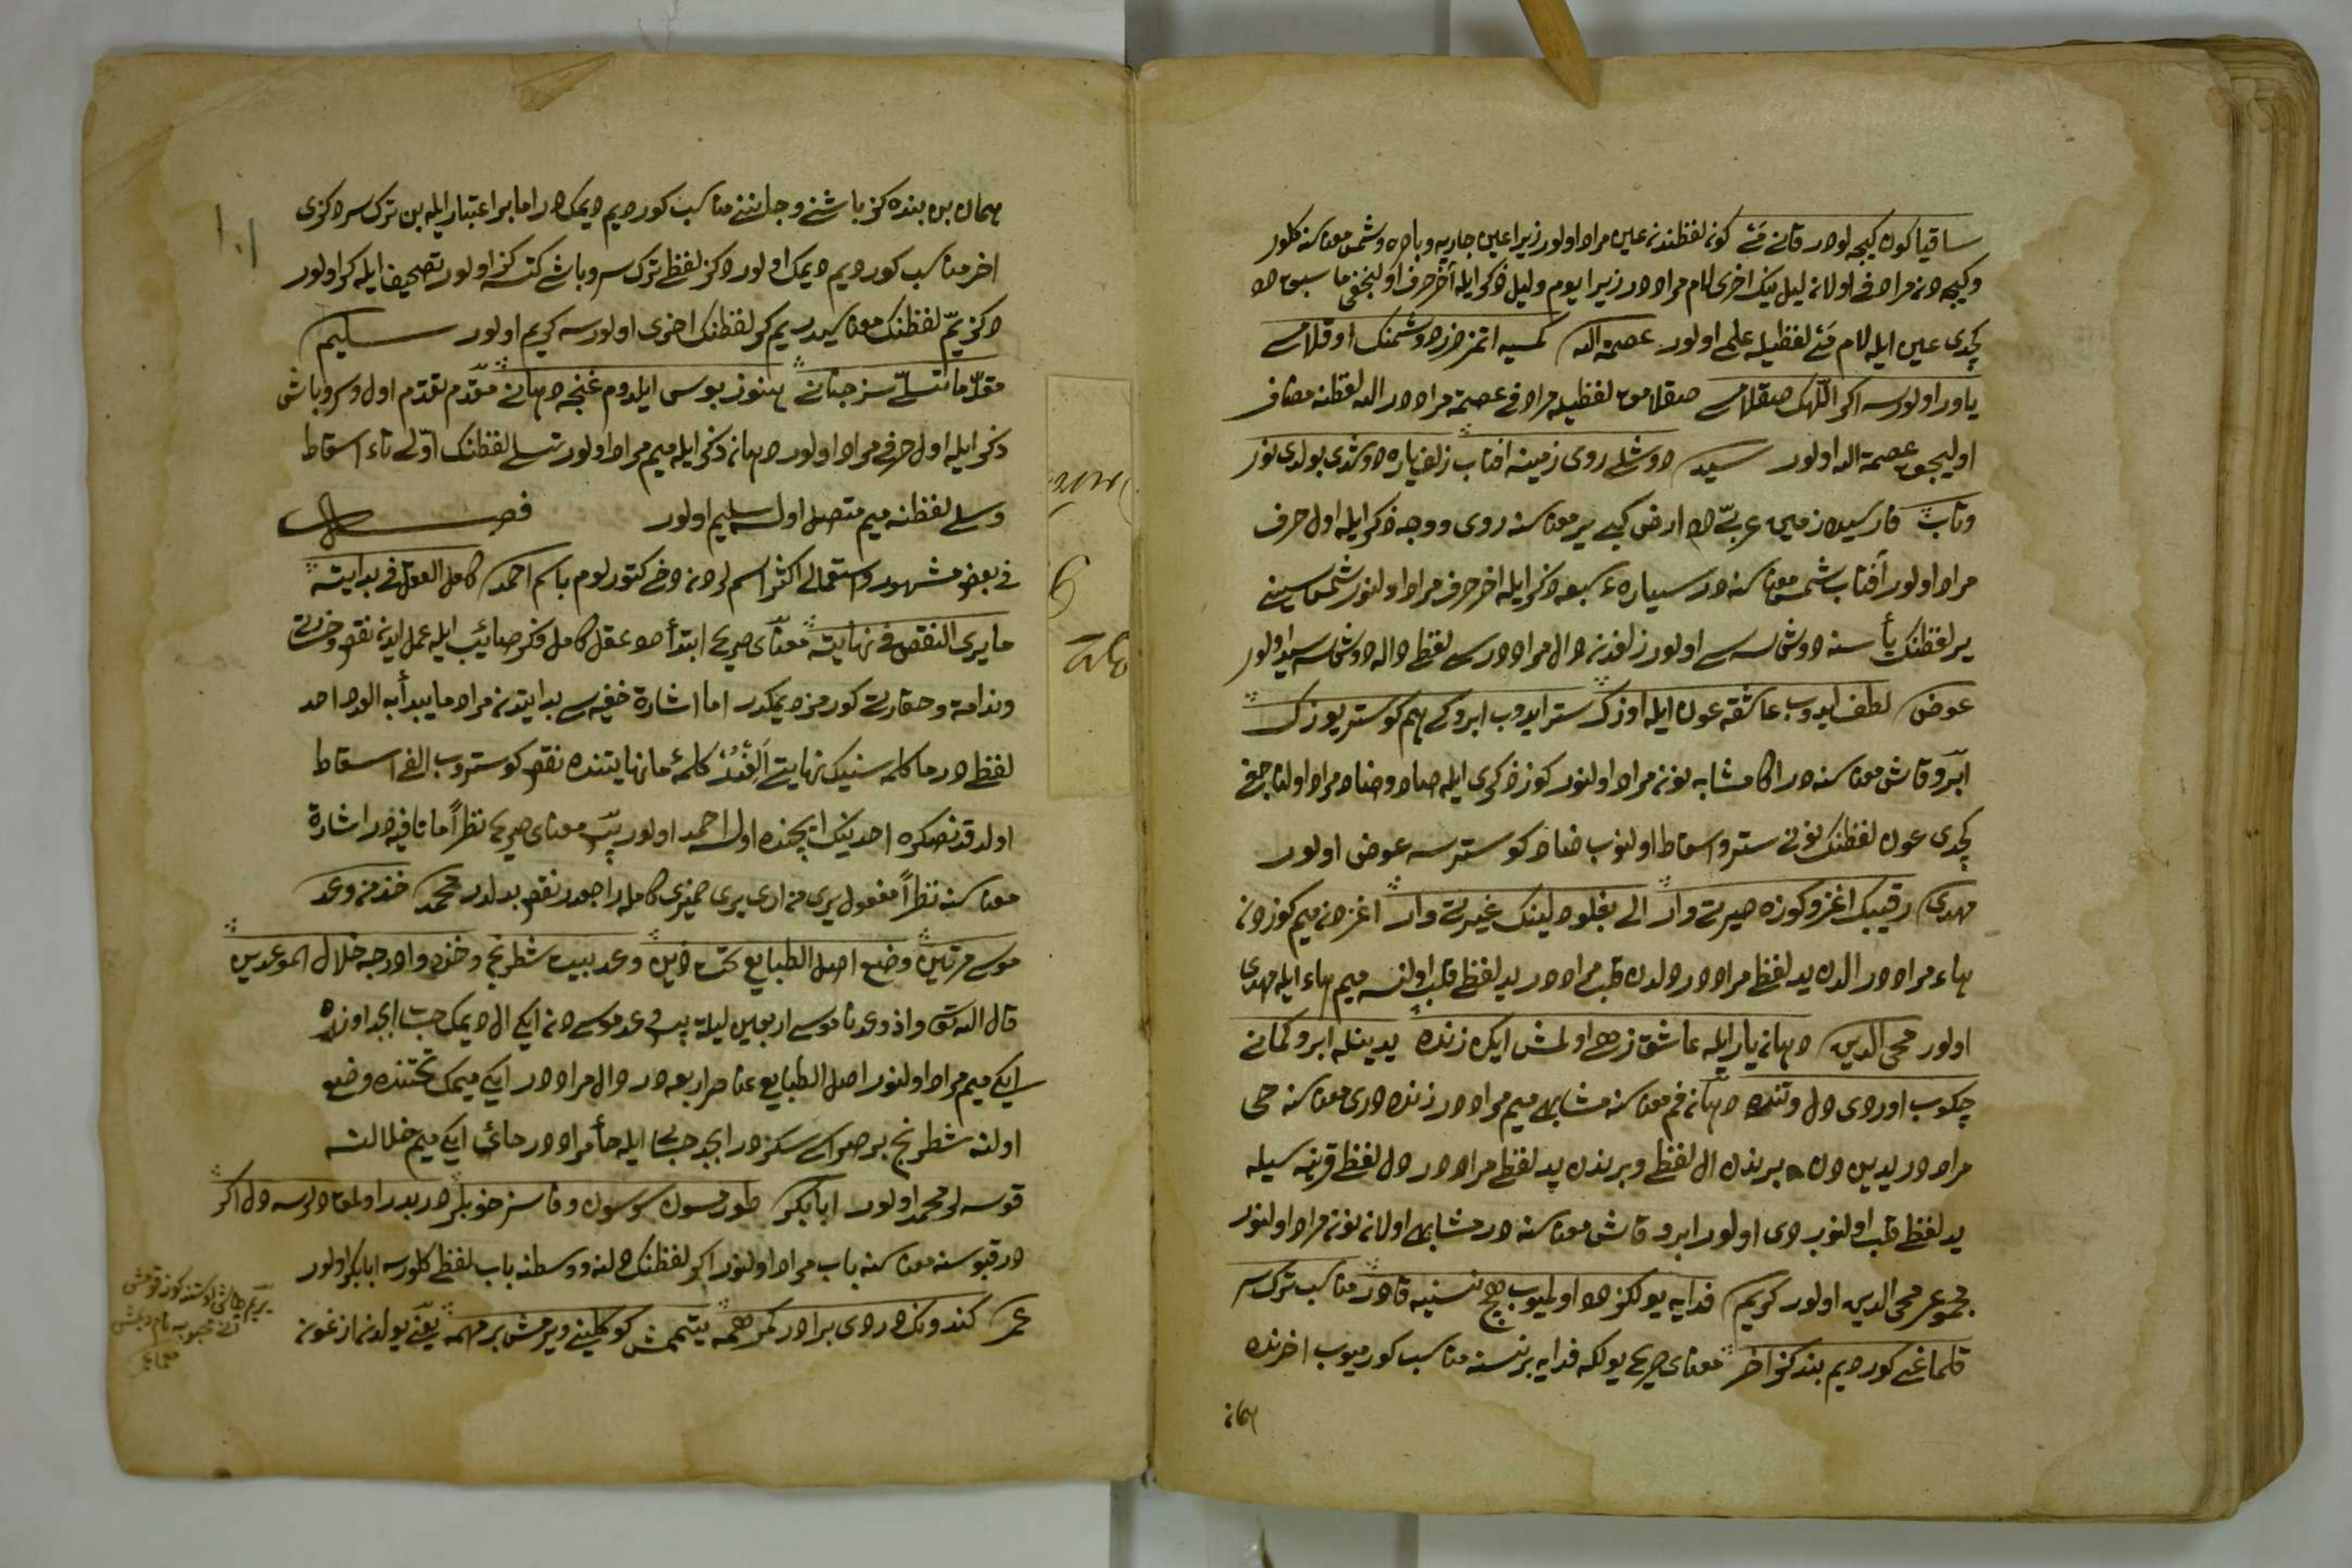 ساقیا کون کیجه لودر قانے مَئے کونه لفظندنه عین مراد اولور زیرا عین جاریه و باده و شمس معناسنه کلور
وکیجه دنه مراد اولانه لیل نیک اخری لام مراددر زیرا یوم ولیل ذکر ایله اخر حرف اولنجغی ما سبق ده
کچدی عین ایله لام مَئے لفظیله علی اولور عصمة الله کمسیه اتمز ضرر دوشمنک اوقلامے
یاور اولورسه اکر اللهک صقلامے صقلامق لفظیله مرادی عصمة مراددر الله لفظنه مضاف
اولیجق عصمة الله اولور سید دوشلے روی زمینه افتاب زلف یاره دوشدی بولدی نور
وتاب فارسیده زمین عربیّ ده ارض کبے یر معناسنه روی ووجه ذکر ایله اول حرف
مراد اولور آفتاب شمس معناسنه در سیارهٔ سبعه ذکر ایله اخر حرف مراد اولنور شمس سینے
یر لفظنک یأسنه دوشسه سے اولور زلفدنه دال مراددر سے لفظ داله دوشسه سید اولور
عوض لطف ایدوب عاشقه عون ایله اوزک ستر ایدوب ابروکے هم کوستر یوزک
ابرو قاش معناسنه در اکا مشابه نونه مراد اولنور کوز ذکری ایله صاد وضاد مراد اولناجغے
کچدی عون لفظنک نونے ستر واسقاط اولنوب ضاد کوسترسه عوض اولور
مهدی رقیبک اغز وکوزه حیرتے وار الے بغلو دلینک غیرتے وار اغزدنه میم کوزدنه
هاء مراددر الدن ید لفظ مراددر ولدن قلب مراددر ید لفظ قلب اولنسه میم هاء ایله مهدی
اولور محی الدین دهانه یار ایله عاشق زهے اولمش ایکن زنده یدینله ابرو کمانے
چکوب اوردی دل وتنده دهانه فم معناسنه مشابهے میم مراددر زنده دری معناسنه حی
مراددر یدین دن برندن ال لفظ وبرندن ید لفظ مراددر دل لفظ قرینه سیله
ید لفظ قلب اولنوب دی اولور ابرو قاش معناسنه در مشابهے اولانه نونه مراد اولنور
مجموعی محی الدین اولور کریم فدایه یولکزده اولمیوب هیچ نسنیه قادر مناسب ترک سر
قلماغے کوردیم بندکز اخر معنای صریحے یولکه فدایه برنسنه مناسب کورمیوب اخرنده
همانه
همان بن بنده کز باشنے وجاننے مناسب کوردیم دیمکدر اما بر اعتبار ایله بن ترک سر دکزی
اخر مناسب کوردیم دیمک اولور دکز لفظ ترک سر وباش کتسه کز اولور تصحیف ایله کر اولور
دکز یمّ لفظنک معناسیدر یم کر لفظنک اخری اولورسه کریم اولور سلیم
مقدّما تسلّے سز جنانے هنوز بوس ایلدوم غنچه دهانے مقدم تقدم اول وسر وباش
ذکر ایله اول حرفے مراد اولور دهانه ذکر ایله میم مراد اولور تسلے لفظنک اوّلے تاء اسقاط
وسلے لفظنه میم متصل اولسه سلیم اولور فصل
فی بعض مشهور واستعمالے اکثر اسملردنه دخے کتورلوم باسم احمد کامل العقل فی بدایته
ما یری النقص فی نهایته معنای صریحے ابتدأ ده عقل کامل فکر صائب ایله عمل ایدنه نقص وخسرتے
وندامة وحقارتے کورمز دیمکدر اما اشارة خفیه سے بدایتدنه مراد ما یبدأ به الود احد
لفظ در ما کلمه سنیک نهایتے اَلِفْدُرْ کلمهٔ ما نهایتنده نقص کوستروب الفے اسقاط
اولدقدنصکره احدینک ایچنده اولسه احمد اولور پسّ معنای صریحے نظراً ما نافیه در اشارة
معناسنه نظراً مفعول یری من ادی یری ضمیری کامله راجعدر نقص بدلدر محمد خذ من وعد
موسے مرتین وضع اصل الطبایع تحت ذین وعد بیت شطرنج وخذه وادرجه خلال الموعدین
قال الله تعالی واذ وعدنا موسے اربعین لیلة پس وعد موسے دنه ایکے ال دیمک حساب ابجد اوزره
ایکے میم مراد اولنور اصل الطبایع عناصر اربعه در دال مراددر ایکے میمک تحتنده وضع
اولنه شطرنج بر صراسے سکزدر ابجد حسابے ایله حأ مراددر حائی ایکے میم خلالنه
قوسه لر محمد اولور ابابکر طورمسون سرسون وفاسز خوبلر دربدر اولمق دلرسه دل اکر
در قپوسنه معناسنه باب مراد اولنور اکر لفظنک دلنه ووسطنه باب لفظ کلورسه ابابکر اولور
عمر کندونک دردی برادر کمر همه یتمش کوکلینے ویرمش بر مهمه یعنے یولدنه ازغونه